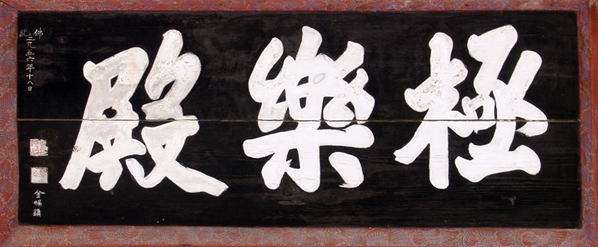 極樂殿
佛紀二九五六年十八日